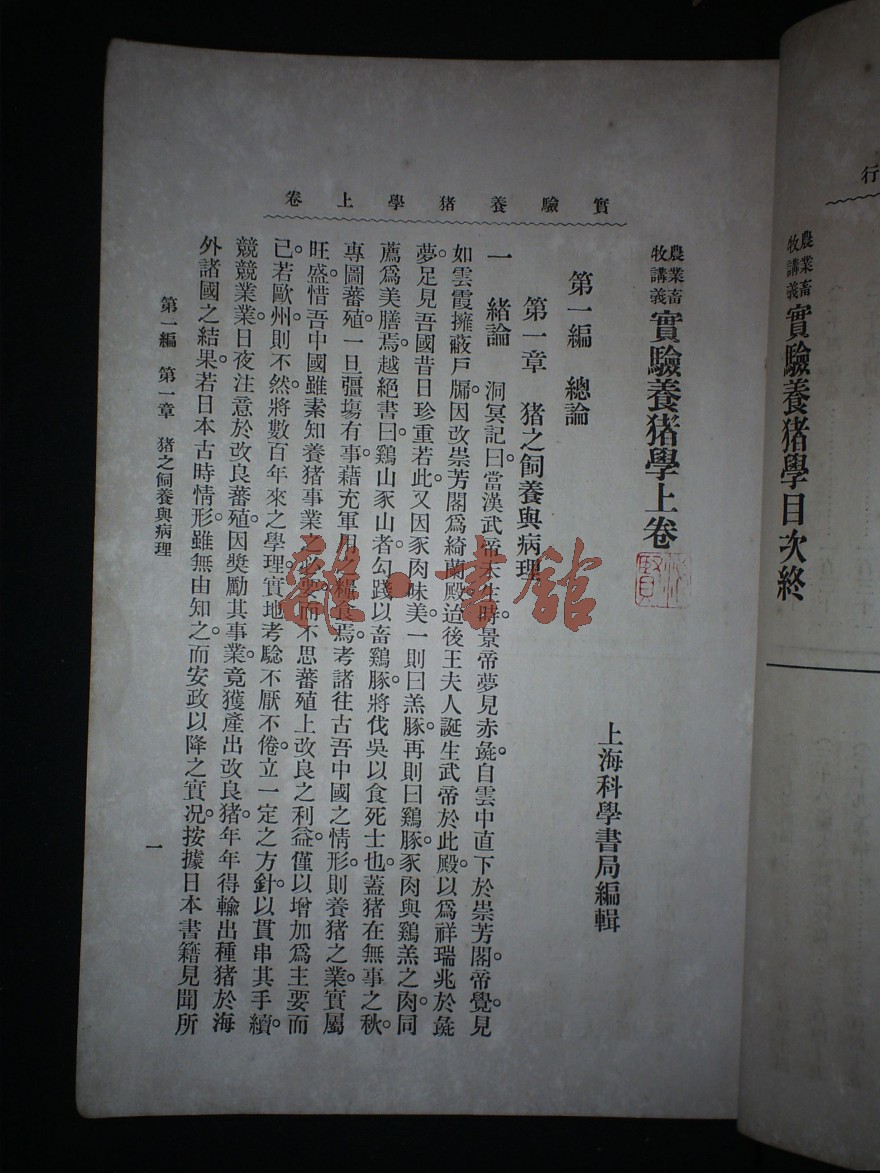 行
農業畜
牧講義
實驗養猪學目次終
實驗養猪學上卷
農業畜
牧講義
實驗養猪學上卷
上海科學書局編輯
第一編　總論
第一章　猪之飼養與病理
一　緒論　洞冥記曰。當漢武帝未生時。景帝夢見赤彘。自雲中直下於崇芳閣。帝覺。見
如雲霞擁蔽戸牖。因改崇芳閣爲綺蘭殿。迨後王夫人誕生武帝於此殿。以爲祥瑞兆於彘
夢。足見吾國昔日珍重若此。又因豕肉味美。一則曰羔豚。再則曰鷄豚。豕肉與鷄羔之肉。同
薦爲美膳焉。越絕書曰。鷄山豕山者。勾踐以畜鷄豚。將伐吳以食死士也。蓋猪在無事之秋。
專圖蕃殖。一旦彊塲有事。藉充軍用之糧食焉。考諸往古吾中國之情形。則養猪之業。實屬
旺盛。惜吾中國雖素知養猪事業之必要。而不思蕃殖上改良之利益。僅以增加爲主要而
已。若歐州則不然。將數百年來之學理。實地考騐。不厭不倦。立一定之方針。以貫串其手續。
競競業業。日夜注意於改良蕃殖。因奬勵其事業。竟獲產出改良猪。年年得輸出種猪於海
外諸國之結果。若日本古時情形。雖無由知之。而安政以降之實况。按據日本書籍見聞所
第一編　第一章　猪之飼養與病理
一
雜·書館